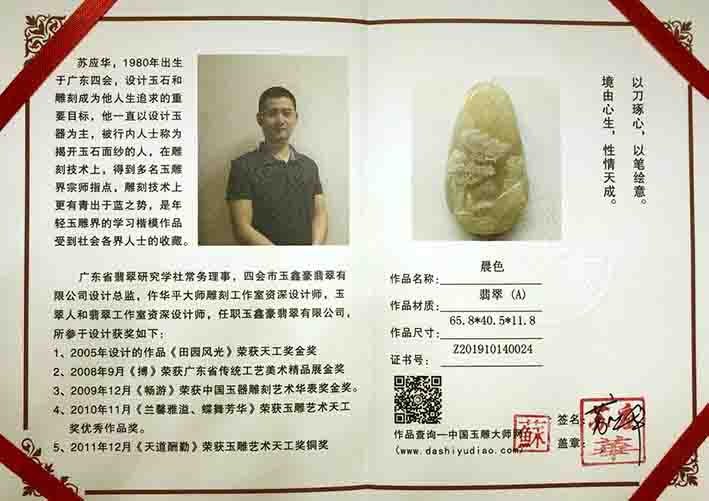 苏应华，1980年出生
于广东四会，设计玉石和
雕刻成为他人生追求的重
要目标，他一直以设计玉
器为主，被行内人士称为
揭开玉石面纱的人，在雕
刻技术上，得到多名玉雕
界宗师指点，雕刻技术上
更有青出于蓝之势，是年
轻玉雕界的学习楷模作品
受到社会各界人士的收藏。
广东省翡翠研究学社常务理事，四会市玉鑫豪翡翠有
限公司设计总监，仵华平大师雕刻工作室资深设计师，玉
翠人和翡翠工作室资深设计师，任职玉鑫豪翡翠有限公司，
所参于设计获奖如下：
1、2005年设计的作品《田园风光》荣获天工奖金奖
2、2008年9月《搏》荣获广东省传统工艺美术精品展金奖
3、2009年12月《畅游》荣获中国玉器雕刻艺术华表奖金奖。
4、2010年11月《兰馨雅溢、蝶舞芳华》荣获玉雕艺术天工
奖优秀作品奖。
5、2011年12月《天道酬勤》荣获玉雕艺术天工奖铜奖
以刀琢心，以笔绘意。
境由心生，性情天成。
作品名称：晨色
作品材质：翡翠 (A)
作品尺寸：65.8*40.5*11.8
证书号：Z201910140024
作品查询—中国玉雕大师网
(www.dashiyudiao.com)
蘇
签名：
盖章：